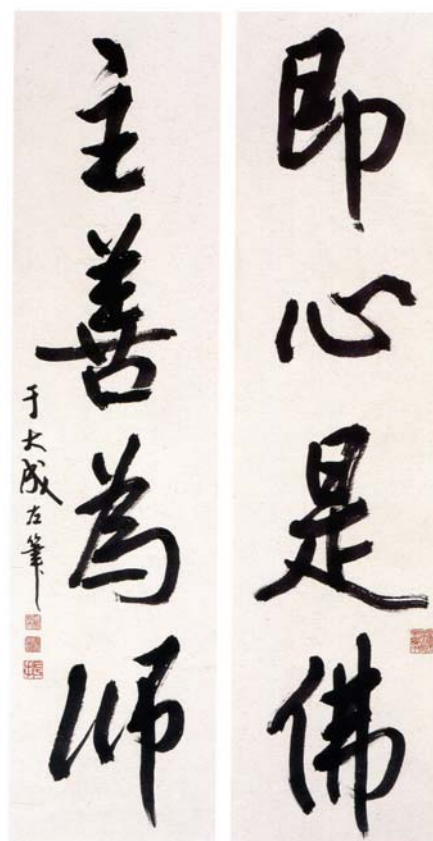 即心是佛
主善為師
于大成左筆